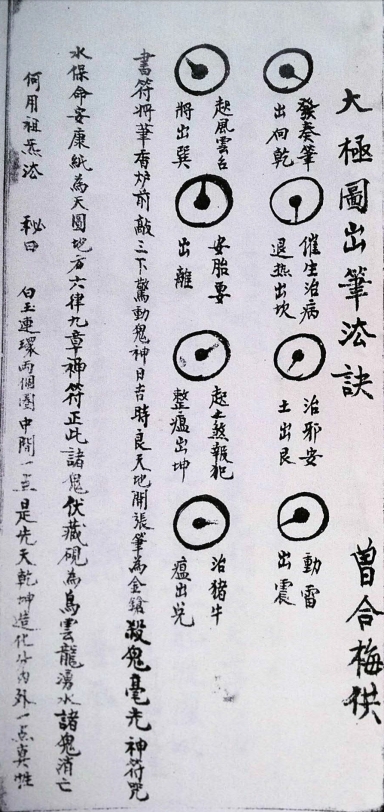 大極圖出筆法訣
曾合梅供
發奏筆
出向乾
催生治病
退热出坎
治邪安
土出艮
動雷
出震
起風雲台
將出巽
安胎要
出離
起土煞報犯
整瘟出坤
治猪牛
瘟出兑
書符將筆香炉前敲三下驚動鬼神日吉時良天地開張筆為金鎗殺鬼毫光神符咒
水保命安康紙為天圓地方六律九章神符正此諸鬼伏藏硯為烏雲龍湧水諸鬼消亡
何用祖炁法 秘曰 白玉連環兩個圈中間一点是先天乾坤造化分内外一点真性